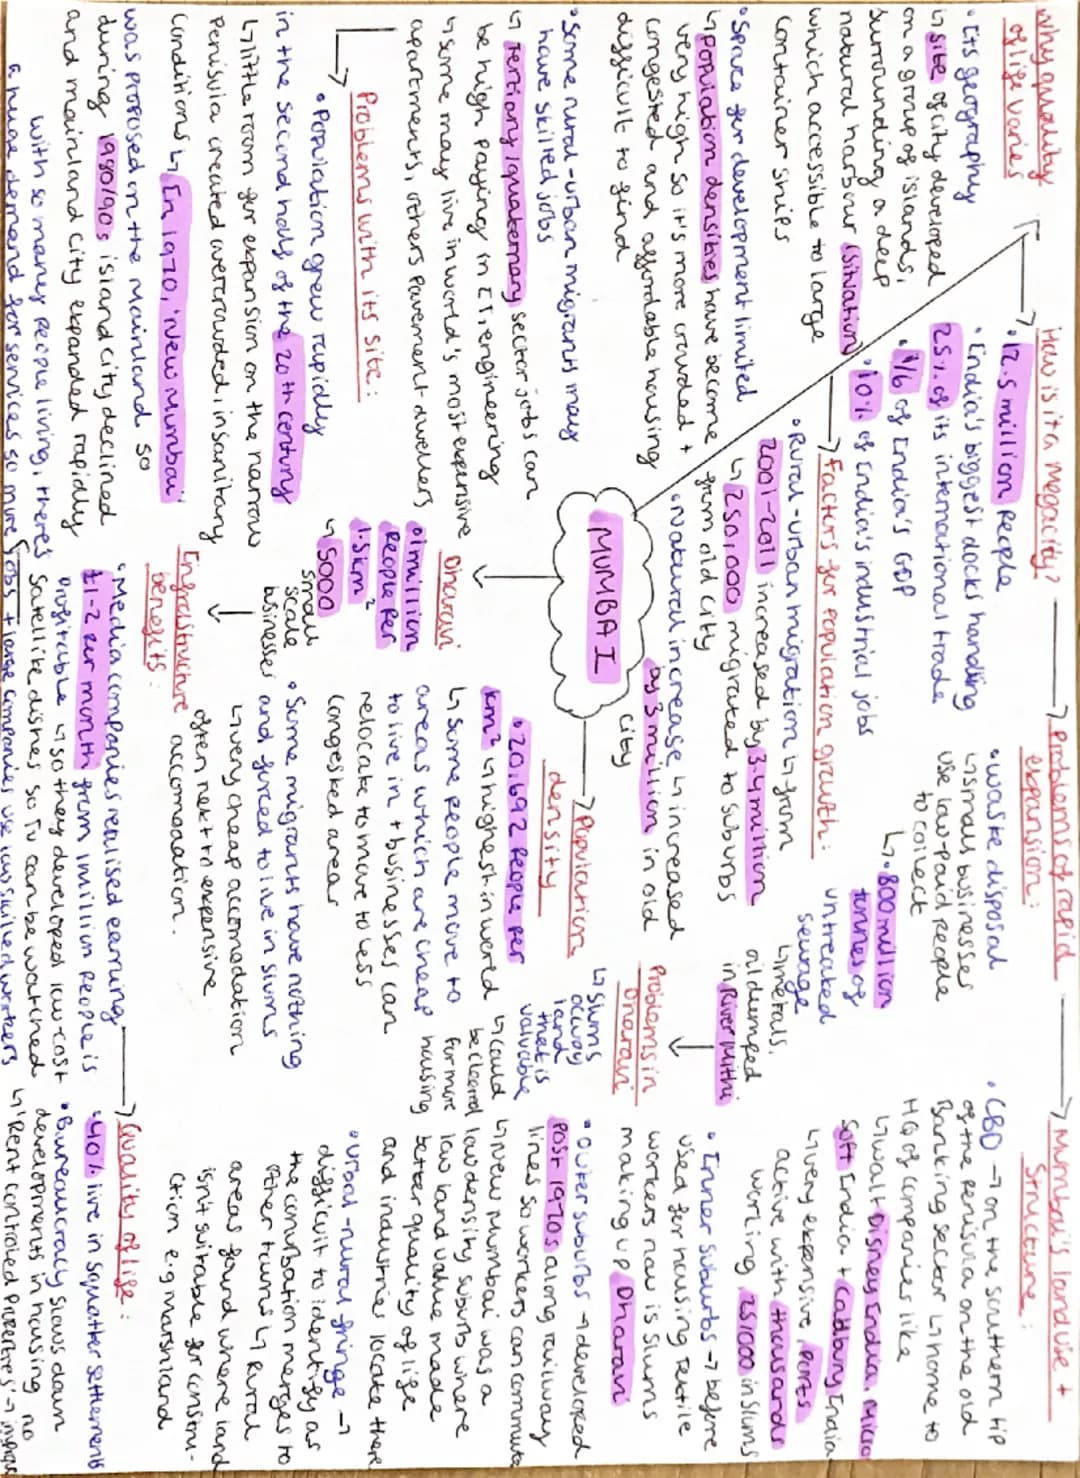 Why quality
of life varies
• Its geography
↳ site of city developed
on a group of islands,
surrounding a deep
natural harbour (situation)
which accessible to large
container ships
• Space for development limited
↳ population densities have become
very high so it's more crowded +
congested and affordable housing
difficult to find
• Some rural-urban migrants may
have skilled jobs
↳ Tertiary/quaternary sector jobs can
be high paying in IT, engineering
↳ some may live in world's most expensive
apartments, others pavement dwellers
Problems with its site:
• Population grew rapidly
in the second half of the 20th century
↳ little room for expansion on the narrow
penisula created overcrowded, insanitary
conditions ↳ In 1970, 'New Mumbai'
was proposed on the mainland so
during 1980/90s island city declined
and mainland city expanded rapidly
with so many people living, theres
a huge demand for services so more jobs + large companies use low skilled workers
How is it a megacity?
• 12.5 million people
• India's biggest docks handling
25% of its international trade
• 1/6 of India's GDP
• 10% of India's industrial jobs
Factors for population growth:
• Rural-urban migration ↳ from
2001-2011 increased by 3.4 million
↳ 250,000 migrated to suburbs
from old city
• Natural increase ↳ increased
by 3 million in old
city
MUMBAI
Dharavi
• 1 million
people per
1.5km²
↳ 5000
small
scale
businesses
Population
density
• 20,692 people per
km² ↳ highest in world
↳ some people move to
areas which are cheap
to live in + businesses can
relocate to move to less
congested area
• Some migrants have nothing
and forced to live in slums
↳ very cheap accomodation
often next to expensive
accomodation.
Infrastructure
benefits:
• Media companies realised earning
£1-2 per month from 1 million people is
profitable ↳ so they developed low-cost
satellike dishes so TV can be watched
Problems of rapid
expansion:
• waste disposal
↳ small businesses
use low-paid people
to collect
↳ • 800 million
tonnes of
untreated
sewage
↳ metals,
oil dumped
in River Mithi
Problems in
Dharavi
↳ slums
occupy
land
that is
valuable
↳ could
be cleared
for more
housing
Mumbai's land use +
structure:
• CBD → on the southern tip
of the penisula on the old
Banking sector ↳ home to
HQ of companies like
↳ Walt Disney India, Micro
soft India + Cadbury India
↳ very expensive, ports
active with thousands
working, 25,000 in slums
• Inner suburbs → before
used for housing textile
workers now is slums
making up Dharavi
• Outer suburbs → developed
post 1970s along railway
lines so workers can commute
↳ New Mumbai was a
low density suburb where
low land value made
better quality of life
and industrie locate there
• Urbal-rural fringe →
difficult to identify as
the conurbation merges to
other towns ↳ Rural
areas found where land
isn't suitable for constru-
ction e.g marshland
Quality of life:
• 40% live in squatter settlements
• Bureaucracy slows down
developments in housing
↳ 'Rent controlled properties' →